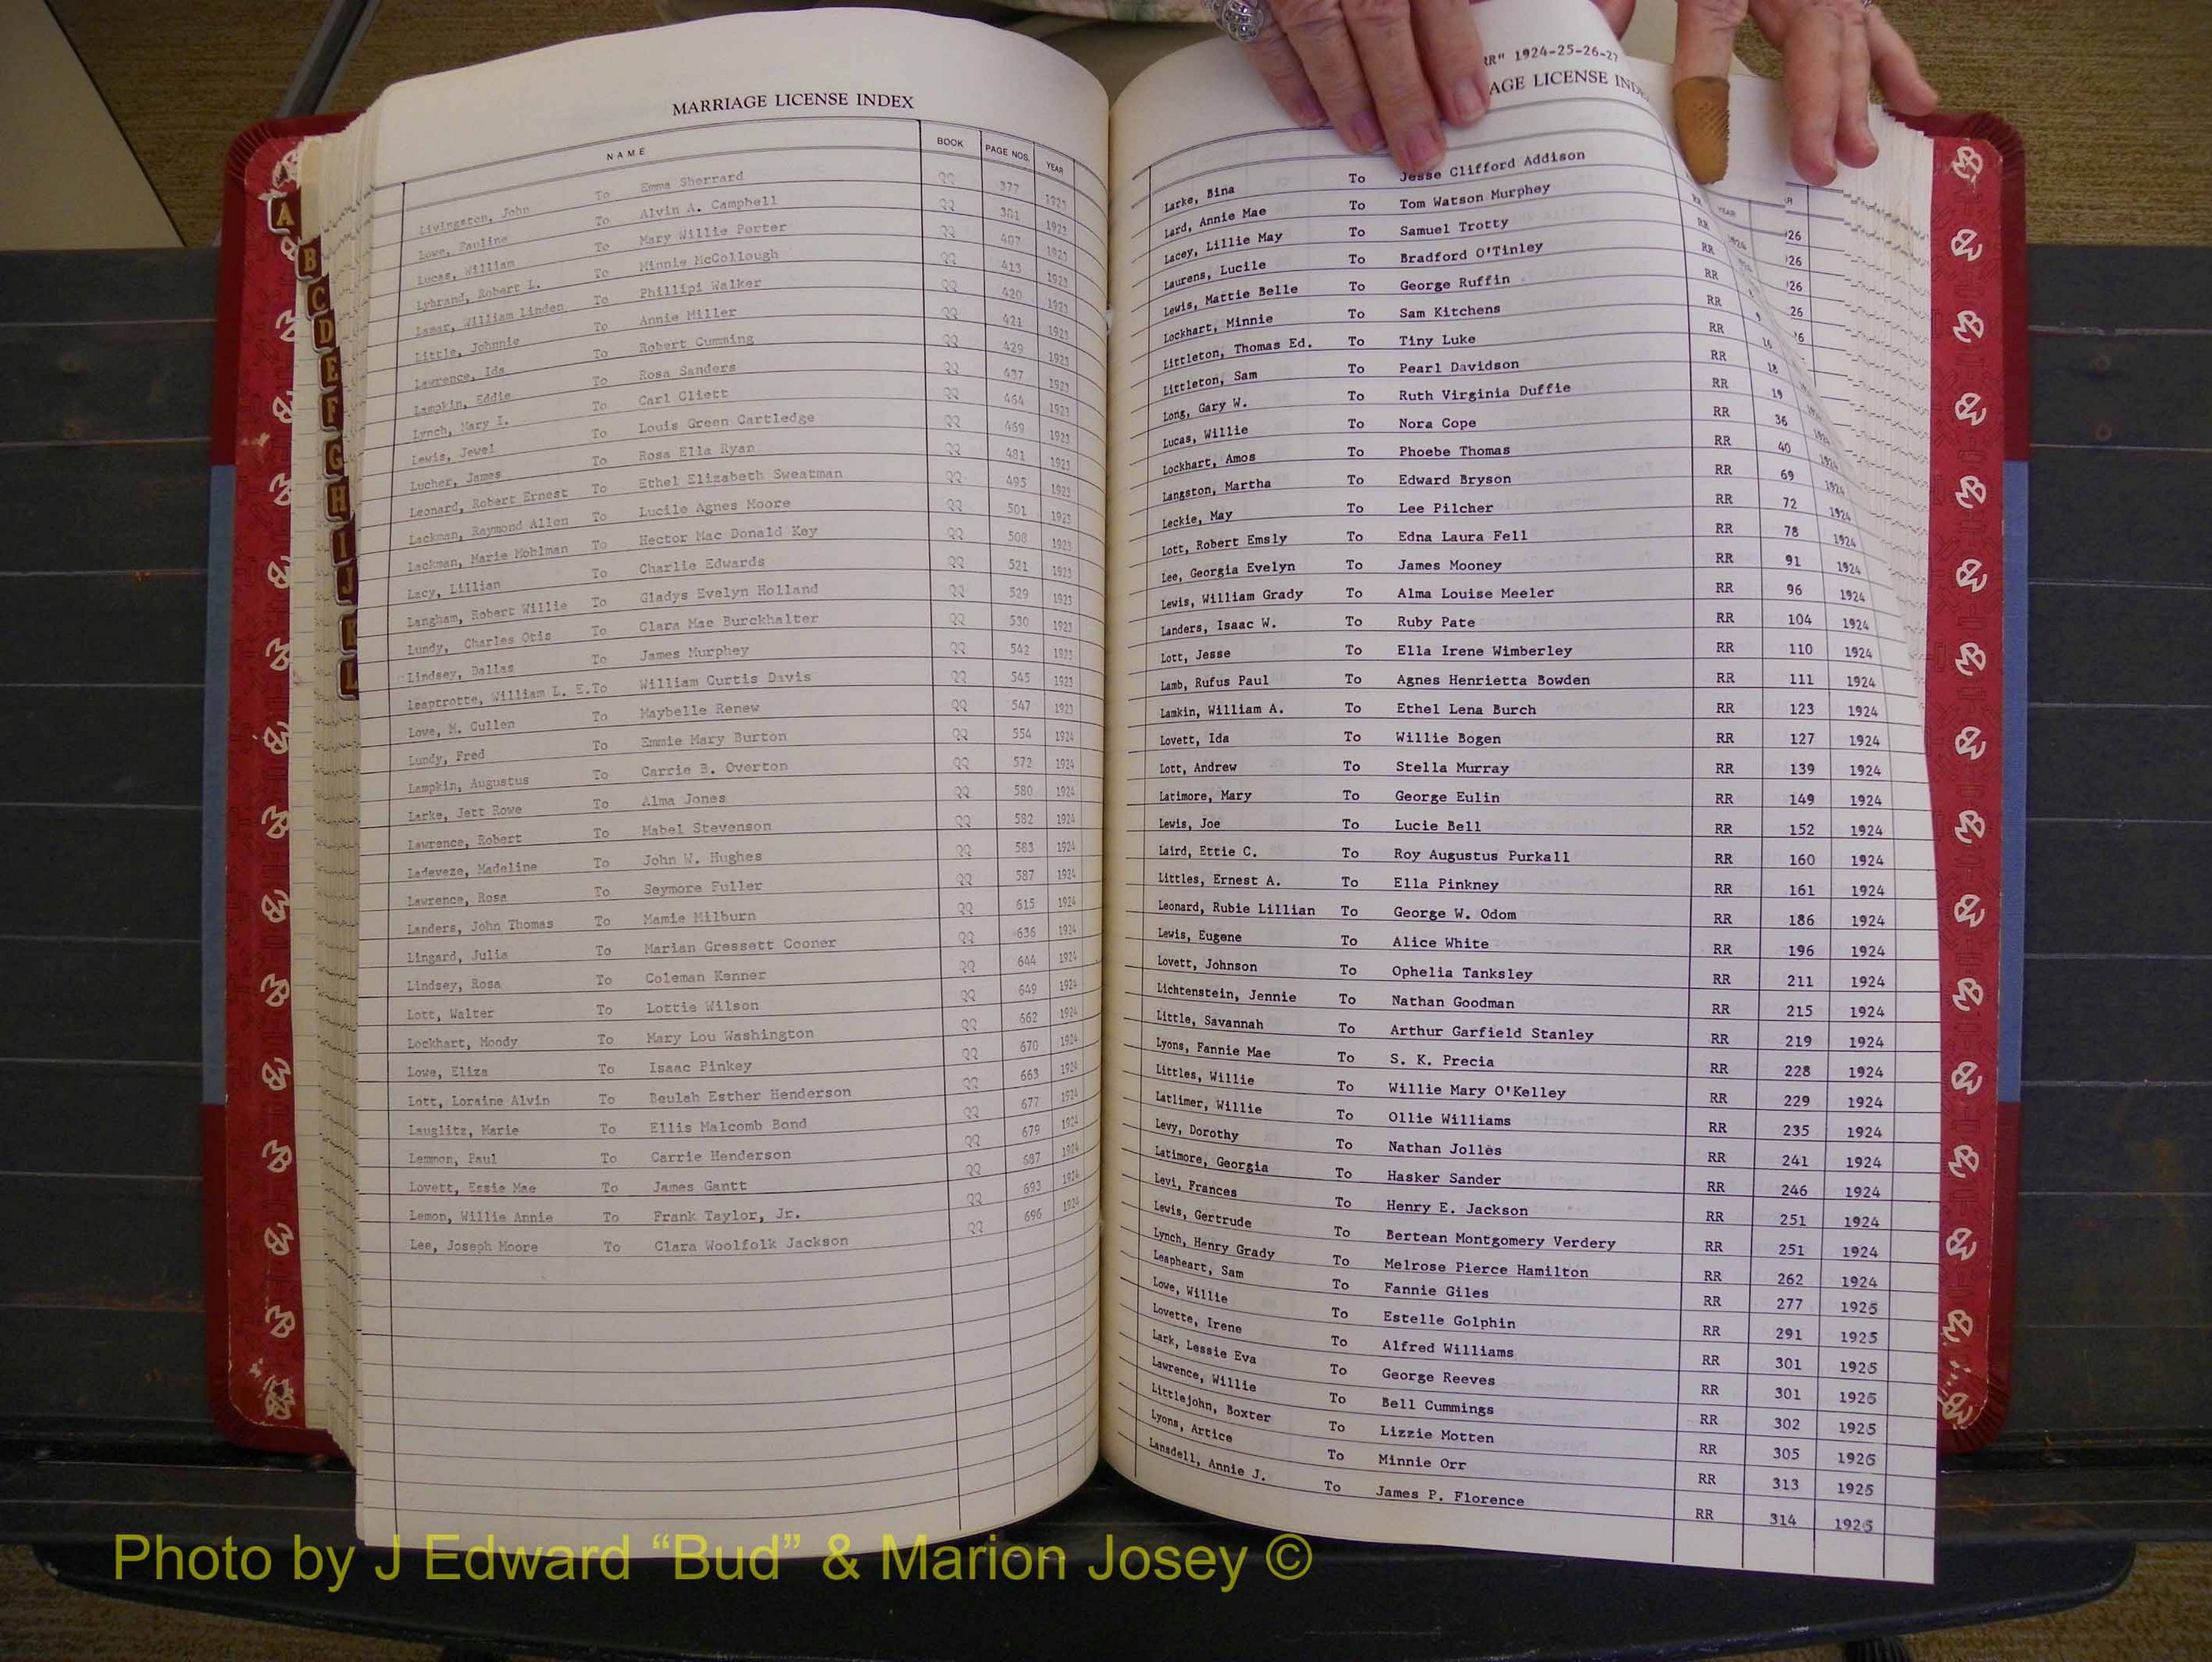 MARRIAGE LICENSE INDEX
NAME BOOK PAGE NOS. YEAR
Livingston, John To Emma Sherrard QQ 377 1923
Lowe, Pauline To Alvin A. Campbell QQ 381 1922
Lucas, William To Mary Willie Porter QQ 407 1923
Lybrand, Robert L. To Minnie McCollough QQ 413 1923
Lamar, William Linden To Phillipi Walker QQ 420 1923
Little, Johnnie To Annie Miller QQ 421 1923
Lawrence, Ida To Robert Cumming QQ 429 1923
Lampkin, Eddie To Rosa Sanders QQ 437 1923
Lynch, Mary I. To Carl Cliett QQ 464 1923
Lewis, Jewel To Louis Green Cartledge QQ 469 1923
Lucher, James To Rosa Ella Ryan QQ 481 1923
Leonard, Robert Ernest To Ethel Elizabeth Sweatman QQ 495 1923
Lackman, Raymond Allen To Lucile Agnes Moore QQ 501 1923
Lackman, Marie Mohlman To Hector Mac Donald Key QQ 508 1923
Lacy, Lillian To Charlie Edwards QQ 521 1923
Langham, Robert Willie To Gladys Evelyn Holland QQ 529 1923
Lundy, Charles Otis To Clara Mae Burckhalter QQ 530 1923
Lindsey, Dallas To James Murphey QQ 542 1923
Leaptrotte, William L. E. To William Curtis Davis QQ 545 1923
Love, M. Cullen To Maybelle Renew QQ 547 1923
Lundy, Fred To Emmie Mary Burton QQ 554 1924
Lampkin, Augustus To Carrie B. Overton QQ 572 1924
Larke, Jett Rowe To Alma Jones QQ 580 1924
Lawrence, Robert To Mabel Stevenson QQ 582 1924
Ladeveze, Madeline To John W. Hughes QQ 583 1924
Lawrence, Rosa To Seymore Fuller QQ 587 1924
Landers, John Thomas To Mamie Milburn QQ 615 1924
Lingard, Julia To Marian Gressett Cooner QQ 636 1924
Lindsey, Rosa To Coleman Kenner QQ 644 1924
Lott, Walter To Lottie Wilson QQ 649 1924
Lockhart, Moody To Mary Lou Washington QQ 662 1924
Lowe, Eliza To Isaac Pinkey QQ 670 1924
Lott, Loraine Alvin To Beulah Esther Henderson QQ 663 1924
Lauglitz, Marie To Ellis Malcomb Bond QQ 677 1924
Lemmon, Paul To Carrie Henderson QQ 679 1924
Lovett, Essie Mae To James Gantt QQ 687 1924
Lemon, Willie Annie To Frank Taylor, Jr. QQ 693 1924
Lee, Joseph Moore To Clara Woolfolk Jackson QQ 696 1924
A
B
C
D
E
F
G
H
I
J
K
L
RR" 1924-25-26-27
AGE LICENSE INDEX
YEAR
Larke, Bina To Jesse Clifford Addison RR
Lard, Annie Mae To Tom Watson Murphey RR
Lacey, Lillie May To Samuel Trotty RR
Laurens, Lucile To Bradford O'Tinley RR
Lewis, Mattie Belle To George Ruffin RR
Lockhart, Minnie To Sam Kitchens RR 9
Littleton, Thomas Ed. To Tiny Luke RR 16
Littleton, Sam To Pearl Davidson RR 18
Long, Gary W. To Ruth Virginia Duffie RR 19
Lucas, Willie To Nora Cope RR 36 1924
Lockhart, Amos To Phoebe Thomas RR 40 1924
Langston, Martha To Edward Bryson RR 69 1924
Leckie, May To Lee Pilcher RR 72 1924
Lott, Robert Emsly To Edna Laura Fell RR 78 1924
Lee, Georgia Evelyn To James Mooney RR 91 1924
Lewis, William Grady To Alma Louise Meeler RR 96 1924
Landers, Isaac W. To Ruby Pate RR 104 1924
Lott, Jesse To Ella Irene Wimberley RR 110 1924
Lamb, Rufus Paul To Agnes Henrietta Bowden RR 111 1924
Lamkin, William A. To Ethel Lena Burch RR 123 1924
Lovett, Ida To Willie Bogen RR 127 1924
Lott, Andrew To Stella Murray RR 139 1924
Latimore, Mary To George Eulin RR 149 1924
Lewis, Joe To Lucie Bell RR 152 1924
Laird, Ettie C. To Roy Augustus Purkall RR 160 1924
Littles, Ernest A. To Ella Pinkney RR 161 1924
Leonard, Rubie Lillian To George W. Odom RR 186 1924
Lewis, Eugene To Alice White RR 196 1924
Lovett, Johnson To Ophelia Tanksley RR 211 1924
Lichtenstein, Jennie To Nathan Goodman RR 215 1924
Little, Savannah To Arthur Garfield Stanley RR 219 1924
Lyons, Fannie Mae To S. K. Precia RR 228 1924
Littles, Willie To Willie Mary O'Kelley RR 229 1924
Latlimer, Willie To Ollie Williams RR 235 1924
Levy, Dorothy To Nathan Jolles RR 241 1924
Latimore, Georgia To Hasker Sander RR 246 1924
Levi, Frances To Henry E. Jackson RR 251 1924
Lewis, Gertrude To Bertean Montgomery Verdery RR 251 1924
Lynch, Henry Grady To Melrose Pierce Hamilton RR 262 1924
Leapheart, Sam To Fannie Giles RR 277 1925
Lowe, Willie To Estelle Golphin RR 291 1925
Lovette, Irene To Alfred Williams RR 301 1925
Lark, Lessie Eva To George Reeves RR 301 1925
Lawrence, Willie To Bell Cummings RR 302 1925
Littlejohn, Boxter To Lizzie Motten RR 305 1925
Lyons, Artice To Minnie Orr RR 313 1925
Lansdell, Annie J. To James P. Florence RR 314 1925
26
26
26
26
Photo by J Edward “Bud” & Marion Josey ©